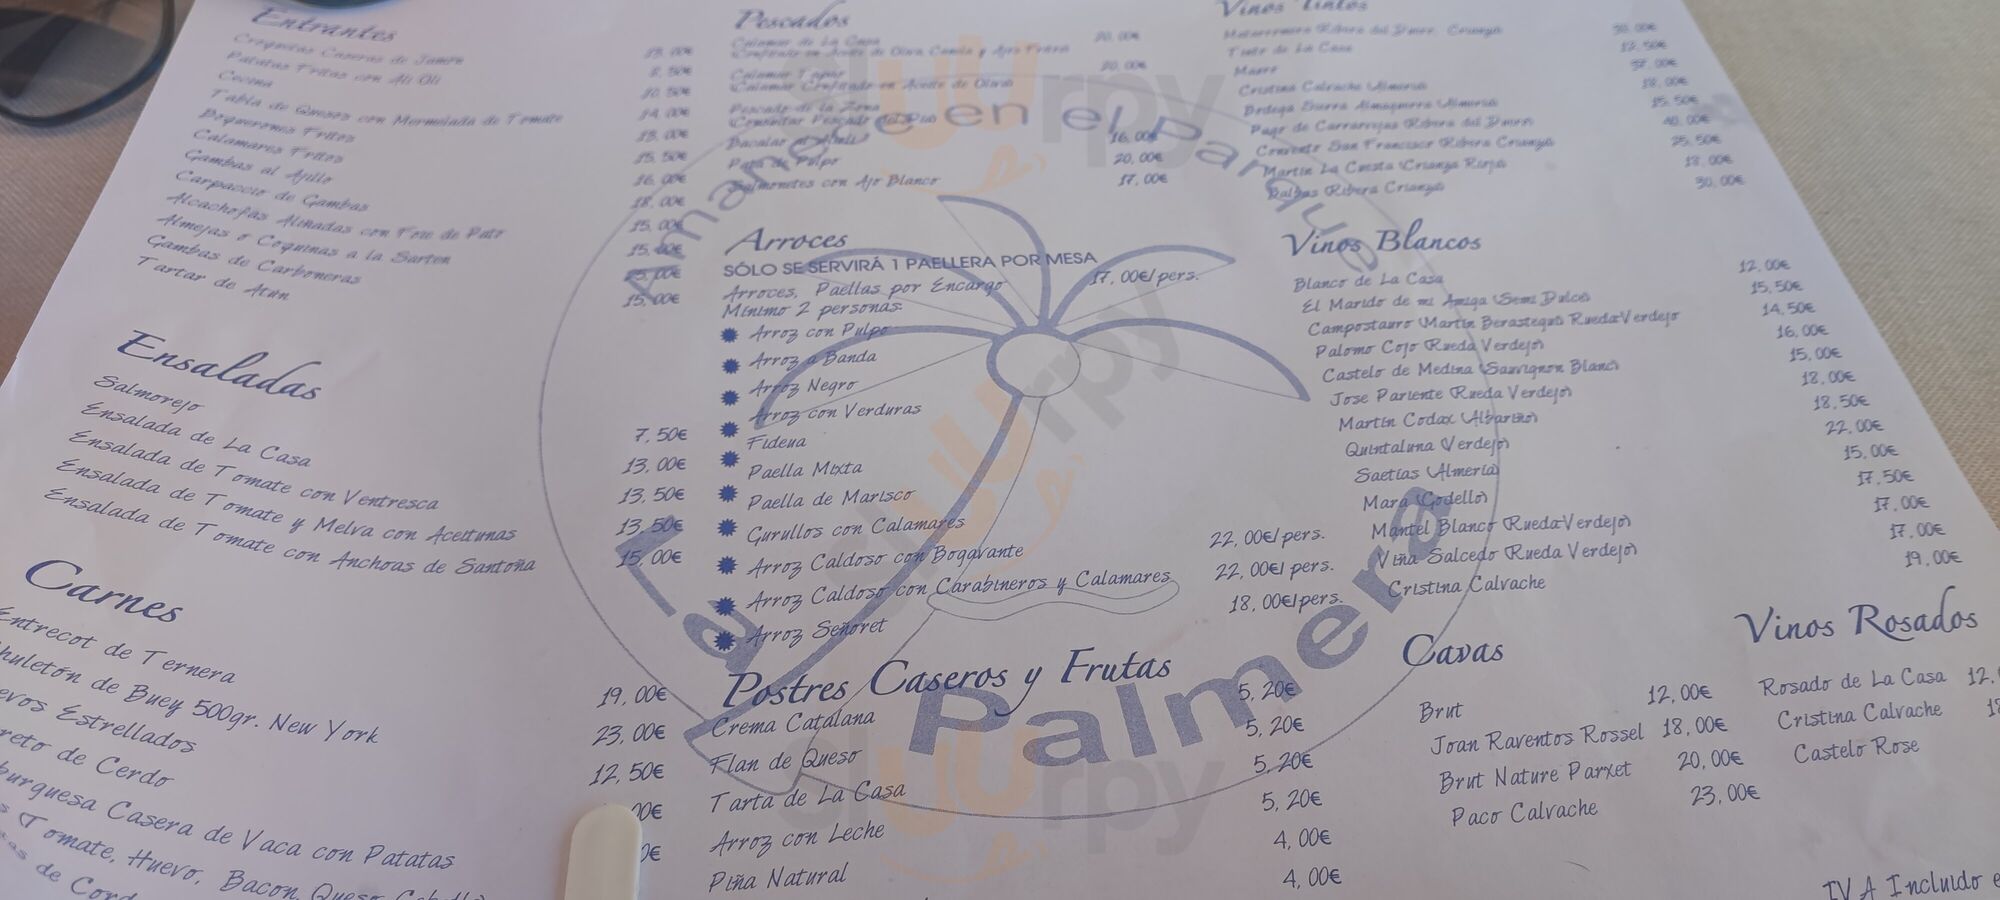 Entrantes
Croquetas Caseras de Jamón
Patatas Fritas con Ali Oli
Cecina
Tabla de Quesos con Mermelada de Tomate
Boquerones Fritos
Calamares Fritos
Gambas al Ajillo
Carpaccio de Gambas
Alcachofas Aliñadas con Foie de Pato
Almejas o Coquinas a la Sarten
Gambas de Carboneras
Tartar de Atún
Ensaladas
Salmorejo 7,50€
Ensalada de La Casa 13,00€
Ensalada de Tomate con Ventresca 13,50€
Ensalada de Tomate y Melva con Aceitunas 13,50€
Ensalada de Tomate con Anchoas de Santoña 15,00€
Carnes
Entrecot de Ternera 19,00€
huletón de Buey 500gr. New York 23,00€
evos Estrellados 12,50€
reto de Cerdo
burguesa Casera de Vaca con Patatas
Tomate, Huevo, Bacon, Queso
de Cord
Pescados
Calamar de La Casa 20,00€
Confitado en Aceite de Oliva
Calamar 20,00€
Calamar Confitado en Aceite de Oliva
Pescado de la Zona
Consultar Pescado del Día
Bacalao al 16,00€
Pata de Pulpo 20,00€
Salmonetes con Ajo Blanco 17,00€
Arroces
SÓLO SE SERVIRÁ 1 PAELLERA POR MESA
Arroces, Paellas por Encargo 17,00€/pers.
Mínimo 2 personas
Arroz con Pulpo
Arroz a Banda
Arroz Negro
Arroz con Verduras
Fideua
Paella Mixta
Paella de Marisco
Gurullos con Calamares
Arroz Caldoso con Bogavante 22,00€/pers.
Arroz Caldoso con Carabineros y Calamares 22,00€/pers.
Arroz Señoret 18,00€/pers.
Postres Caseros y Frutas
Crema Catalana 5,20€
Flan de Queso 5,20€
Tarta de La Casa 5,20€
Arroz con Leche 5,20€
Piña Natural 4,00€
4,00€
Vinos Tintos
Matarromera Ribera del Duero, Crianza
Tinto de La Casa
Cristina Calvache Almería
Bodega Sierra Almagrera Almería
Pago de Carraovejas Ribera del Duero
Convento San Francisco Ribera Crianza
Martin La Cuesta Crianza Rioja
Balbas Ribera Crianza 30,00€
Vinos Blancos
Blanco de La Casa 12,00€
El Marido de mi Amiga (Semi Dulce) 15,50€
Campostauro (Martin Berastegui) Rueda-Verdejo 14,50€
Palomo Cojo (Rueda Verdejo) 16,00€
Castelo de Medina (Sauvignon Blanc) 15,00€
Jose Pariente (Rueda Verdejo) 18,00€
Martin Codax (Albariño) 18,50€
Quintaluna (Verdejo) 22,00€
Saetias (Almería) 15,00€
Mara (Godello) 17,50€
Mantel Blanco (Rueda-Verdejo) 17,00€
Viña Salcedo (Rueda Verdejo) 17,00€
Cristina Calvache 19,00€
Cavas
Brut 12,00€
Joan Raventos Rossel 18,00€
Brut Nature Parxet 20,00€
Paco Calvache 23,00€
Vinos Rosados
Rosado de La Casa 12,
Cristina Calvache
Castelo Rose
IVA Incluido e
Amanece en el Parque
La Palmera
sluurpy
sluurpy
sluurpy